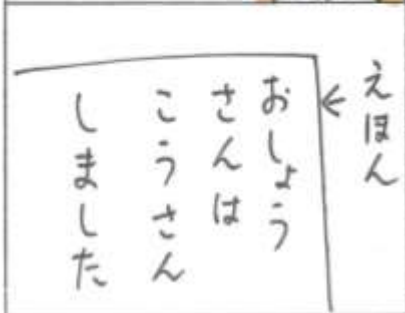 えほん
おしょう
さんは
こうさん
しました